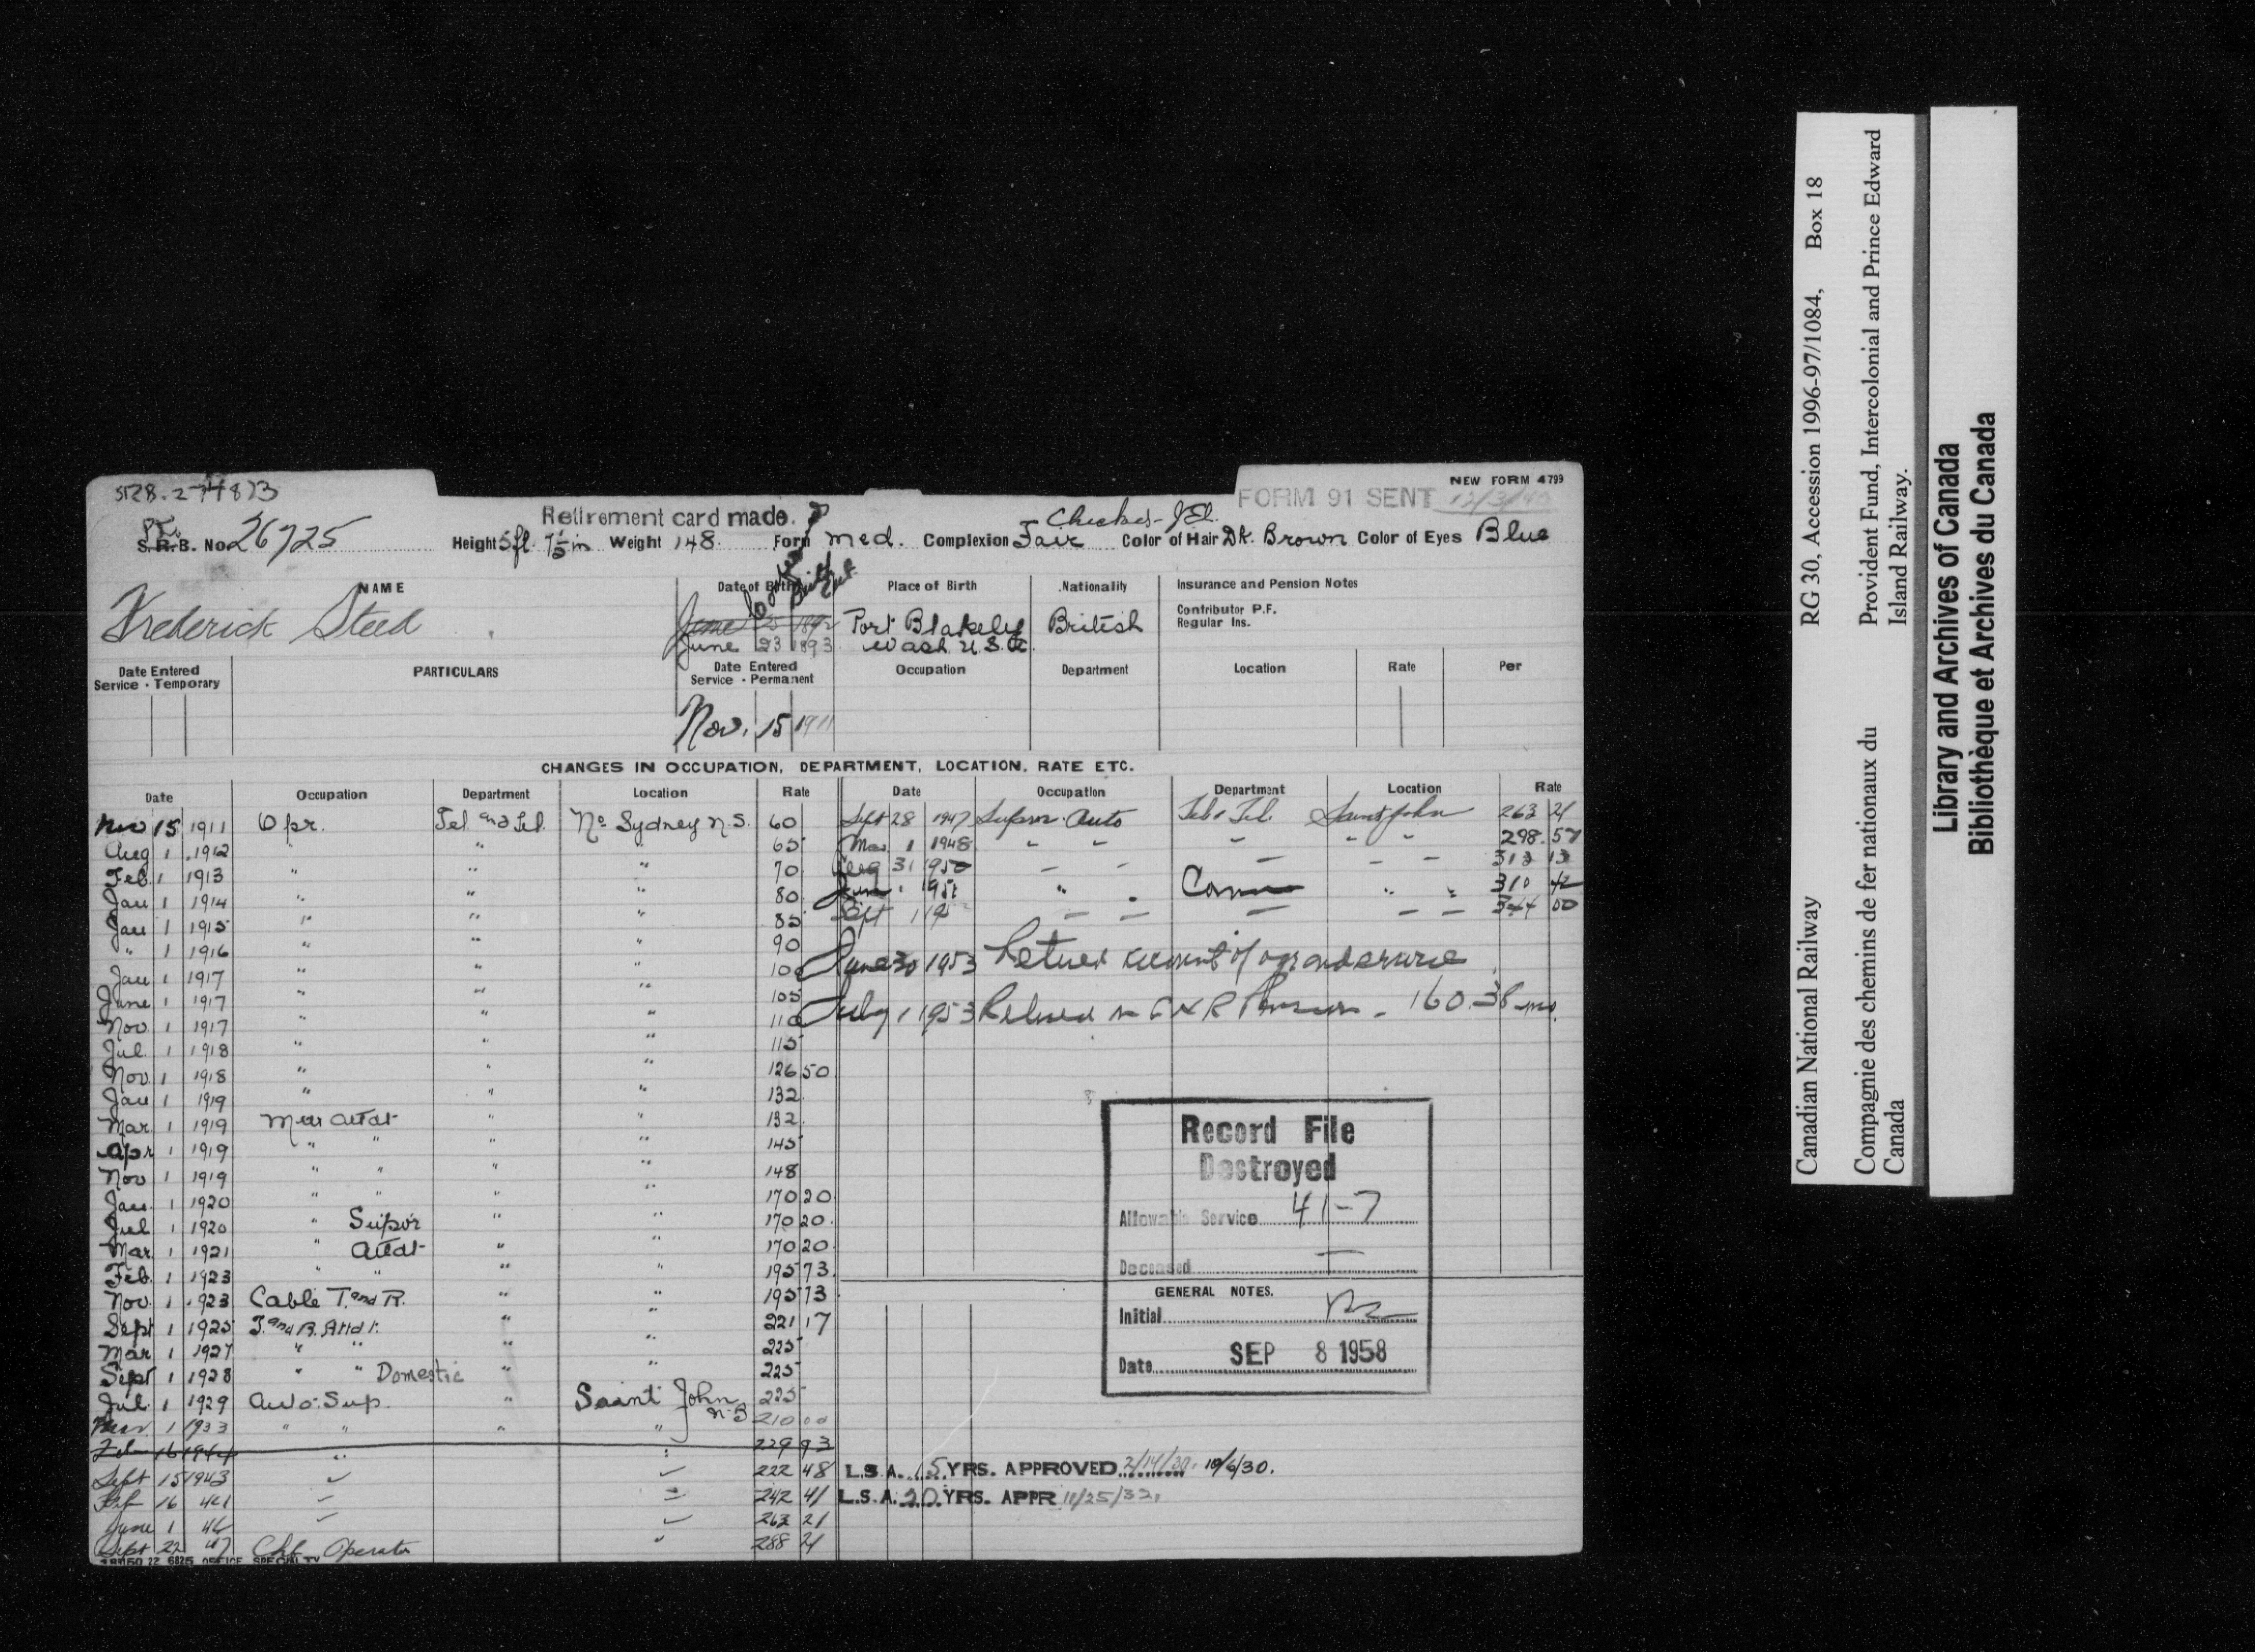 NEW FORM 4799
FORM 91 SENT
Retirement card made.
S.R.B. No. 26725 Height 5 ft. Weight 148 Form med. Complexion Fair Color of Hair Dk. Brown Color of Eyes Blue
NAME Date of Birth Place of Birth Nationality Insurance and Pension Notes
Frederick Steed June 25 1892 Port Blakeley British Contributor P.F.
Regular Ins.
June 23 1893 Wash. U.S.A.
Date Entered Service - Temporary PARTICULARS Date Entered Service - Permanent Occupation Department Location Rate Per
Nov. 15 1911
CHANGES IN OCCUPATION, DEPARTMENT, LOCATION, RATE ETC.
Date Occupation Department Location Rate
Nov 15 1911 Opr. Tel and Tel. No Sydney N.S. 60
Aug 1 1912 " " 65
Feb. 1 1913 " " " 70
Jan 1 1914 " " " 80
Jan 1 1915 " " " 85
" 1 1916 " " " 90
Jan 1 1917 " " " 100
June 1 1917 " " " 105
Nov. 1 1917 " " " 110
Jul. 1 1918 " " " 115
Nov. 1 1918 " " " 126 50
Jan 1 1919 " " " 132
Mar. 1 1919 " " 132
Apr 1 1919 " " " " 145
Nov 1 1919 " " " " 148
Jan. 1 1920 " " " " 170 20
Jul 1 1920 " Supvr " " 170 20
Mar. 1 1921 " Attdt " " 170 20
Feb. 1 1923 " " " " 195 73
Nov. 1 1923 Cable T. and R. " " 195 73
Sept 1 1925 T. and R. Attdt. " " 221 17
Mar 1 1927 " " " " 225
Sept 1 1928 " " Domestic " " 225
Jul. 1 1929 Auto. Sup. " Saint John N.B 225
Mar. 1 1933 " " " " 210 00
Feb 16 1944 " " 229 93
Sept 15 1943 222 48
Feb 16 44 242 41
June 1 46 263 21
Sept 22 47 Chf. Operator " 288 21
18M150 22 6825 OFFICE SPECIALTY
Date Occupation Department Location Rate
Sept 28 1947 Supvr. Auto Tel & Tel. Saint John 263 21
Mar 1 1948 " " " " " 298 57
Aug 31 1950 313 13
June 1 1951 " " Comm " " 310 42
Sept 1 344 00
June 30 1953 Retired account of age and service
July 1 1953 Retired on CNR Pension - 160.38 mo.
Record File
Destroyed
Allowable Service 41-7
Deceased —
GENERAL NOTES.
Initial
Date SEP 8 1958
L.S.A. 15 YRS. APPROVED 2/14/30. 10/6/30.
L.S.A. 20 YRS. APPR 11/25/32.
Canadian National Railway RG 30, Accession 1996-97/1084, Box 18
Compagnie des chemins de fer nationaux du Canada
Provident Fund, Intercolonial and Prince Edward Island Railway.
Library and Archives of Canada
Bibliothèque et Archives du Canada